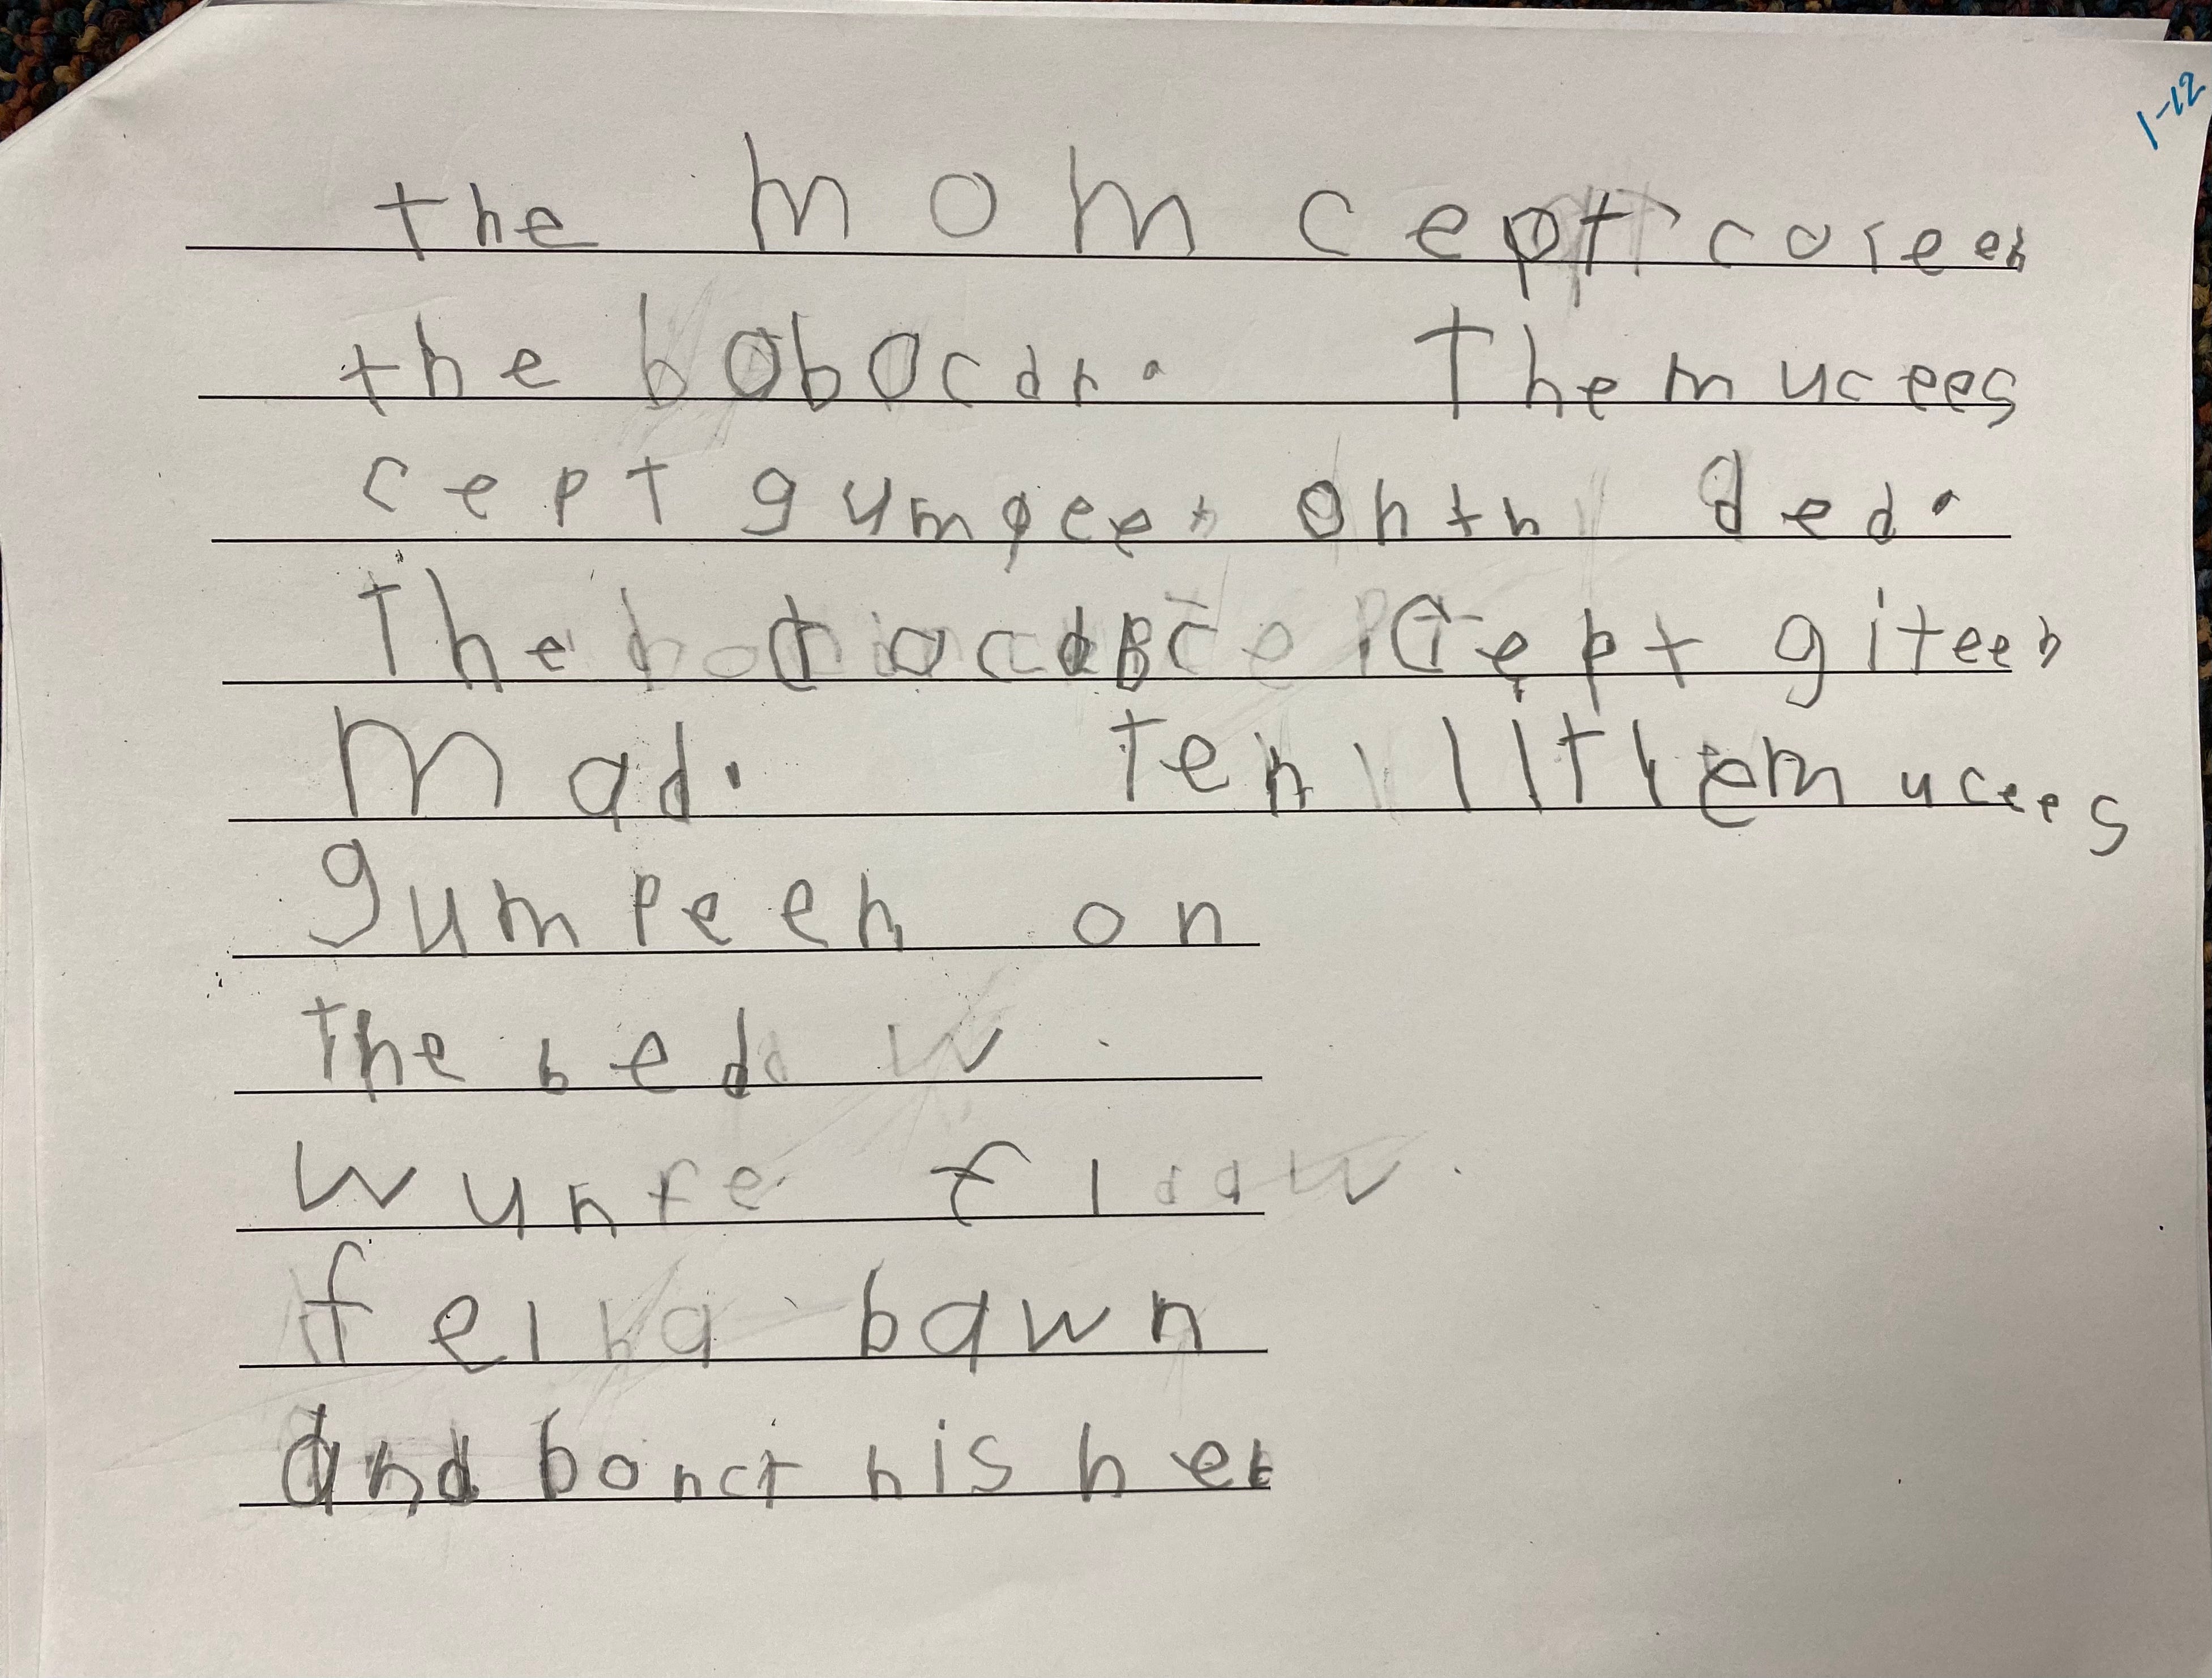 1-12
the mom cept coleeh
the bobocdr. The mucees
cept gumpeeh on th ded.
The docdr cept giteeh
mad. Ten littlemucees
gumpeeh on
the bed
wunfe fl
fel bawn
and bonct his hed